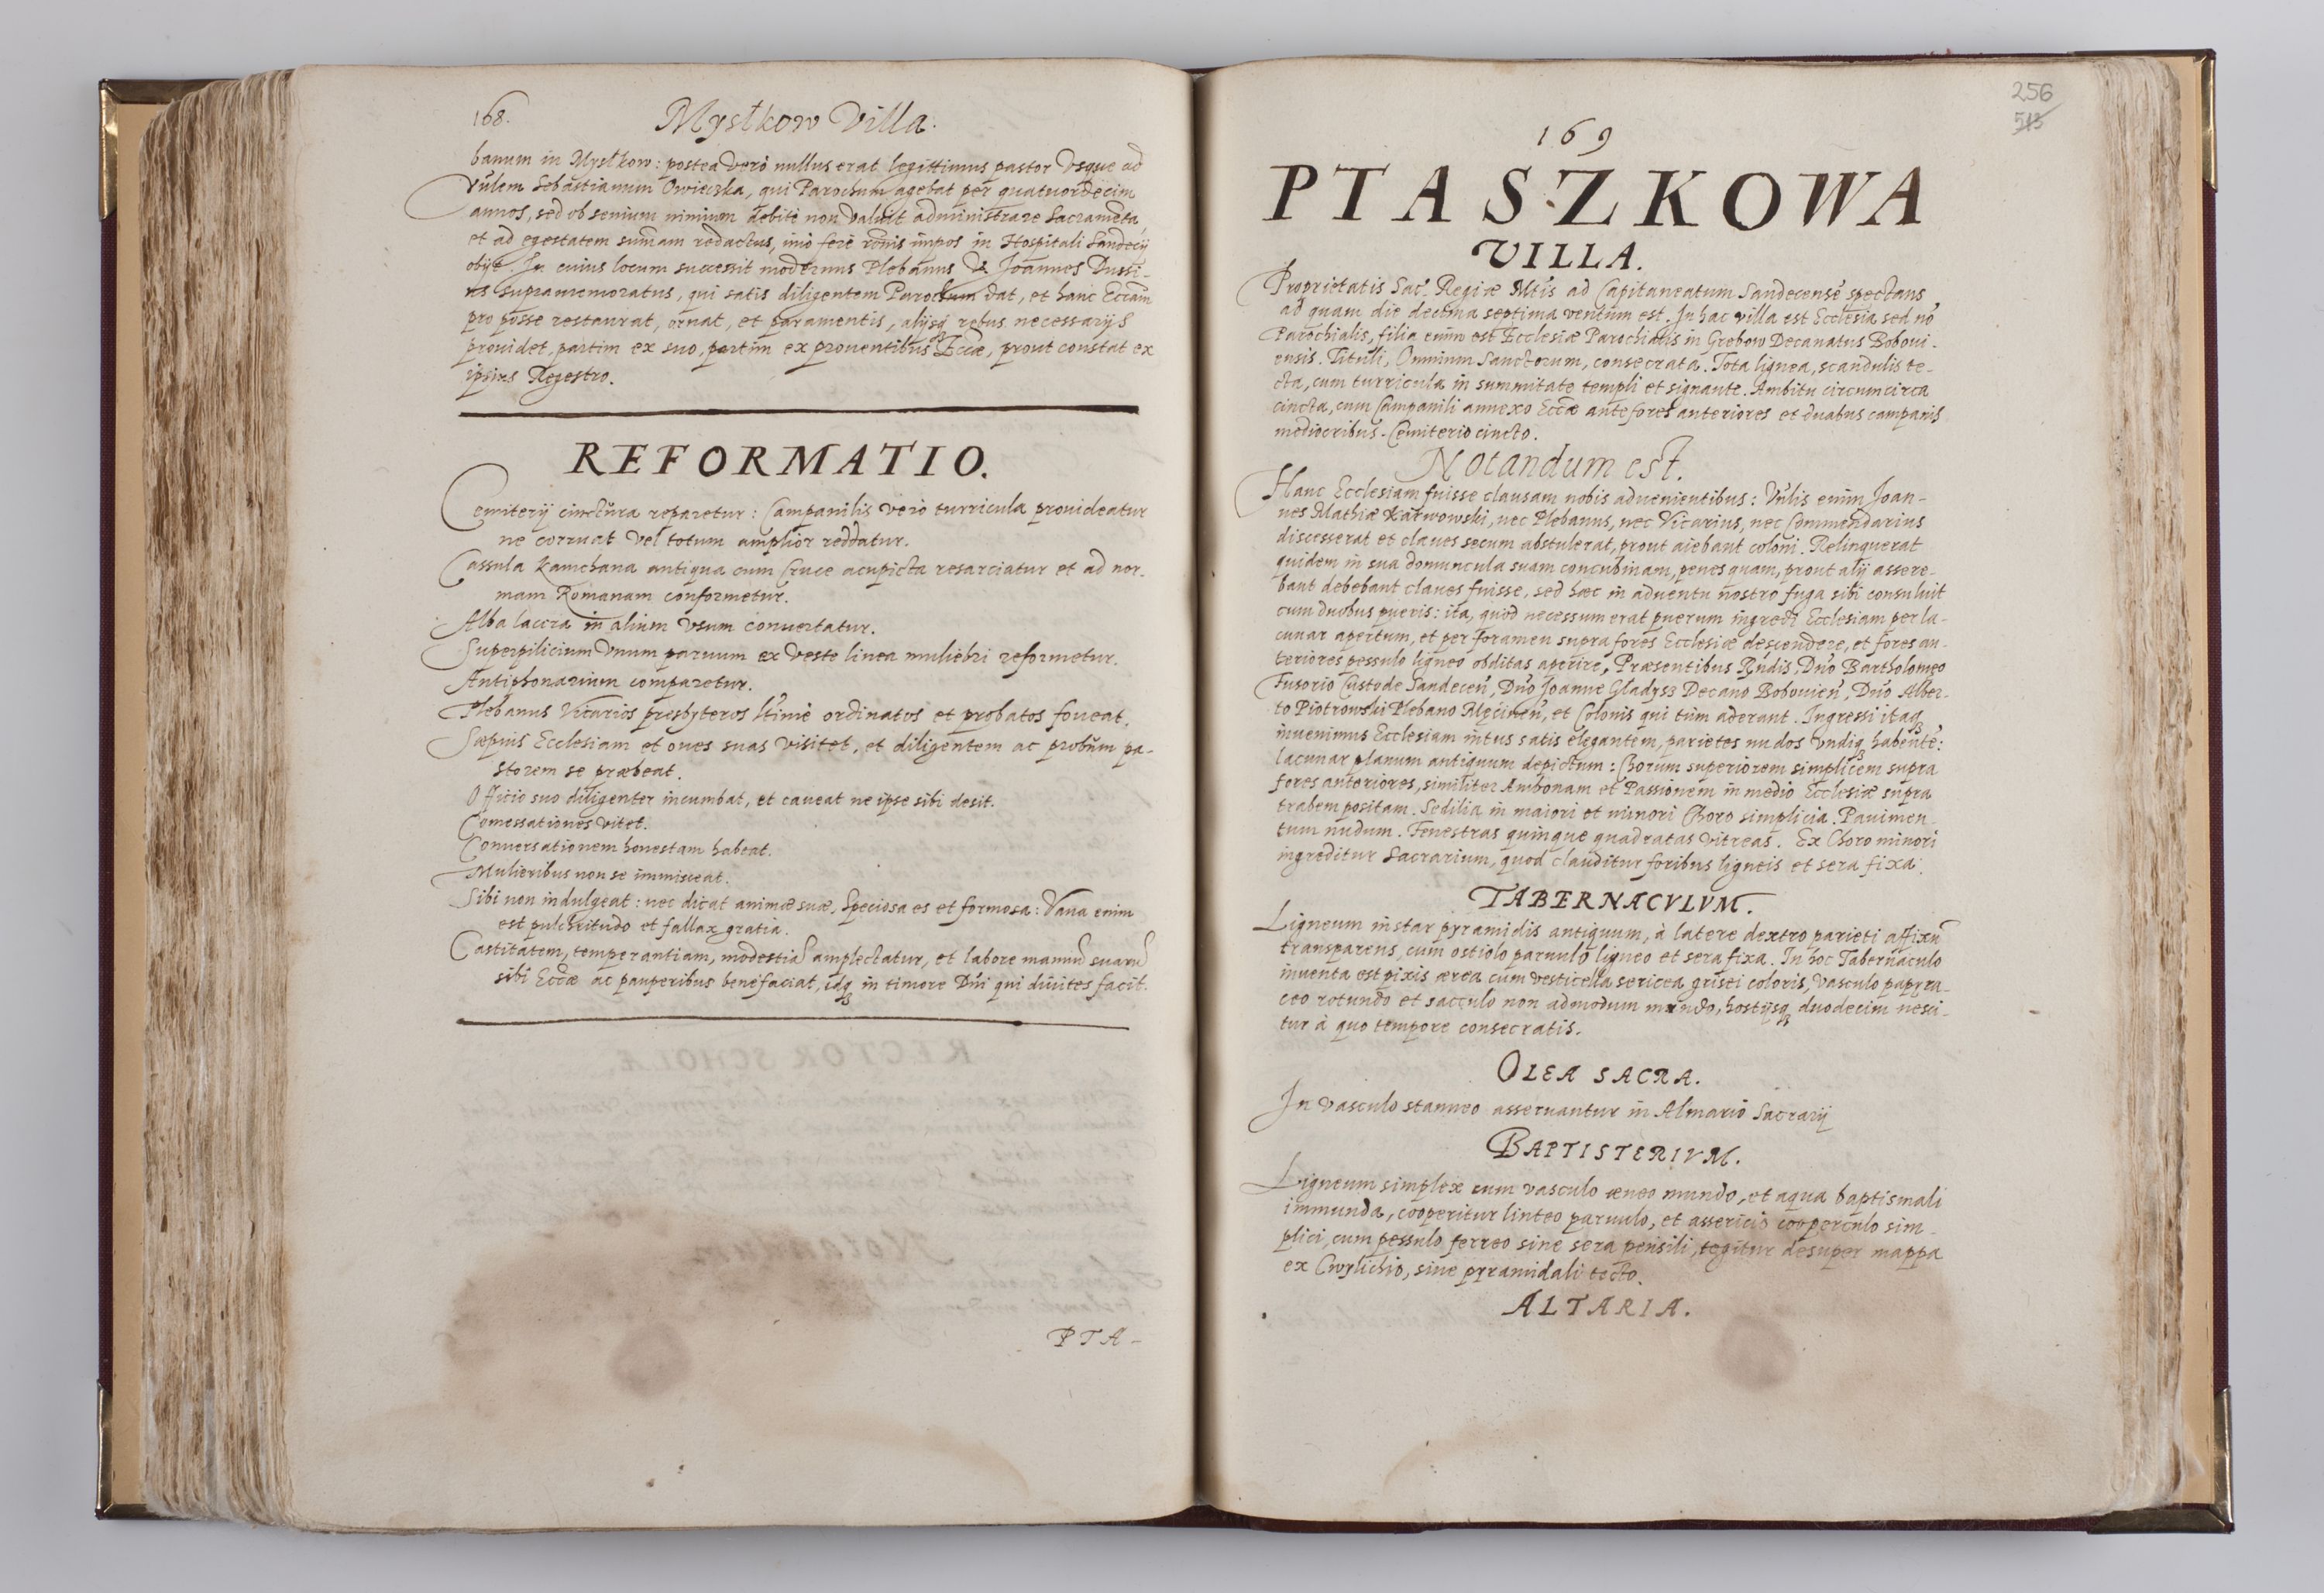 168.
Mystkow Villa.
banum in Mystkow: postea verò nullus erat legittimus pastor Vsque ad
Vñlem Sebastianum Owieczka, qui Parochum agebat per quatuordecim
annos, sed ob senium nimium debitè non valuit administrare Sacramẽta,
et ad egestatem sum̃am redactus, imò ferè rõnis impos in Hospitali Sandecij
obijt. In cuius locum successit modernus Plebanus V. Joannes Dussi-
us supramemoratus, qui satis diligentem Parochum dat, et hanc Eccãm
pro posse restaurat, ornat, et paramentis, alijsq̃ rebus necessarijs
prouidet, partim ex suo, partim ex prouentibus Eccæ, prout constat ex
ipsius Regestro.
REFORMATIO.
Cemiterij cinctura reparetur: Campanilis verò turricula prouideatur
ne corruat vel totum amplior reddatur.
Cassula kamchana antiqua cum Cruce acupicta resarciatur et ad nor-
mam Romanam conformetur.
Alba lacera in alium vsum conuertatur.
Superpilicium Vnum paruum ex veste linea muliebri reformetur.
Antiphonarium comparetur.
Plebanus Vicarios presbyteros ltimè ordinatos et probatos foueat.
Sæpius Ecclesiam et oues suas visitet, et diligentem ac probum pa-
storem se præbeat.
Officio suo diligenter incumbat, et caueat ne ipse sibi desit.
Comessationes vitet.
Conuersationem honestam habeat.
Mulieribus non se immisceat.
Sibi non indulgeat: nec dicat animæ suæ, Speciosa es et formosa: Vana enim
est pulchritudo et fallax gratia.
Castitatem, temperantiam, modestiã amplectatur, et labore manuũ suarũ
sibi Eccæ ac pauperibus benefaciat, idq̃ in timore Dñi qui diuites facit.
PTA-
256
513
169
PTASZKOWA
VILLA.
Proprietatis Sac. Regiæ Mtis ad Capitaneatum Sandecensẽ spectans
ad quam die decima septima ventum est. In hac villa est Ecclesia sed nõ
Parochialis, filia enim est Ecclesiæ Parochialis in Grobow Decanatus Boboui-
ensis. Tituli, Omnium Sanctorum, consecrata. Tota lignea, scandulis te-
cta, cum turricula in summitate templi et signante. Ambitu circumcirca
cincta, cum Campanili annexo Eccæ ante fores anteriores et duabus campanis
mediocribus. Cemiterio cincto.
Notandum est.
Hanc Ecclesiam fuisse clausam nobis aduenientibus: Vñlis enim Joan-
nes Mathiæ Karwowski, nec Plebanus, nec Vicarius, nec Commendarius
discesserat et claues secum abstulerat, prout aiebant coloni. Relinquerat
quidem in sua domuncula suam concubinam, penes quam, prout alij assere-
bant debebant claues fuisse, sed hæc in aduentu nostro fuga sibi consuluit
cum duobus pueris: ita, quòd necessum erat puerum ingredi Ecclesiam per la-
cunar apertum, et per foramen supra fores Ecclesiæ descendere, et fores an-
teriores pessulo ligneo obditas aperire, Præsentibus Rñdis, Dño Bartholomeo
Fusorio Custode Sandecen̄, Dño Joanne Gładysz Decano Bobouien̄, Dño Alber-
to Piotrowski Plebano Męcinen̄, et Colonis qui tum aderant. Ingressi itaq̃
inuenimus Ecclesiam intus satis elegantem, parietes nudos vndiq̃ habentẽ:
lacunar planum antiquum depictum: Chorum superiorem simplicem supra
fores anteriores, similiter Ambonam et Passionem in medio Ecclesiæ supra
trabem positam. Sedilia in maiori et minori Choro simplicia. Pauimen-
tum nudum. Fenestras quinque quadratas vitreas. Ex Choro minori
ingreditur Sacrarium, quod clauditur foribus ligneis et sera fixa.
TABERNACVLVM.
Ligneum instar pyramidis antiquum, à latere dextro parieti affixũ
transparens, cum ostiolo paruulo ligneo et sera fixa. In hoc Tabernaculo
inuenta est pixis ærea cum vesticella sericea grisei coloris, vasculo papyra-
ceo rotundo et sacculo non admodum mundo, hostijsq̃ duodecim nesci-
tur à quo tempore consecratis.
OLEA SACRA.
In vasculo stanneo asseruantur in Almario Sacrarij
BAPTISTERIVM.
Ligneum simplex cum vasculo æneo mundo, et aqua baptismali
immunda, cooperitur linteo paruulo, et assericio cooperculo sim-
plici, cum pessulo ferreo sine sera pensili, tegitur desuper mappa
ex Cwylichio, sine pyramidali tecto.
ALTARIA.